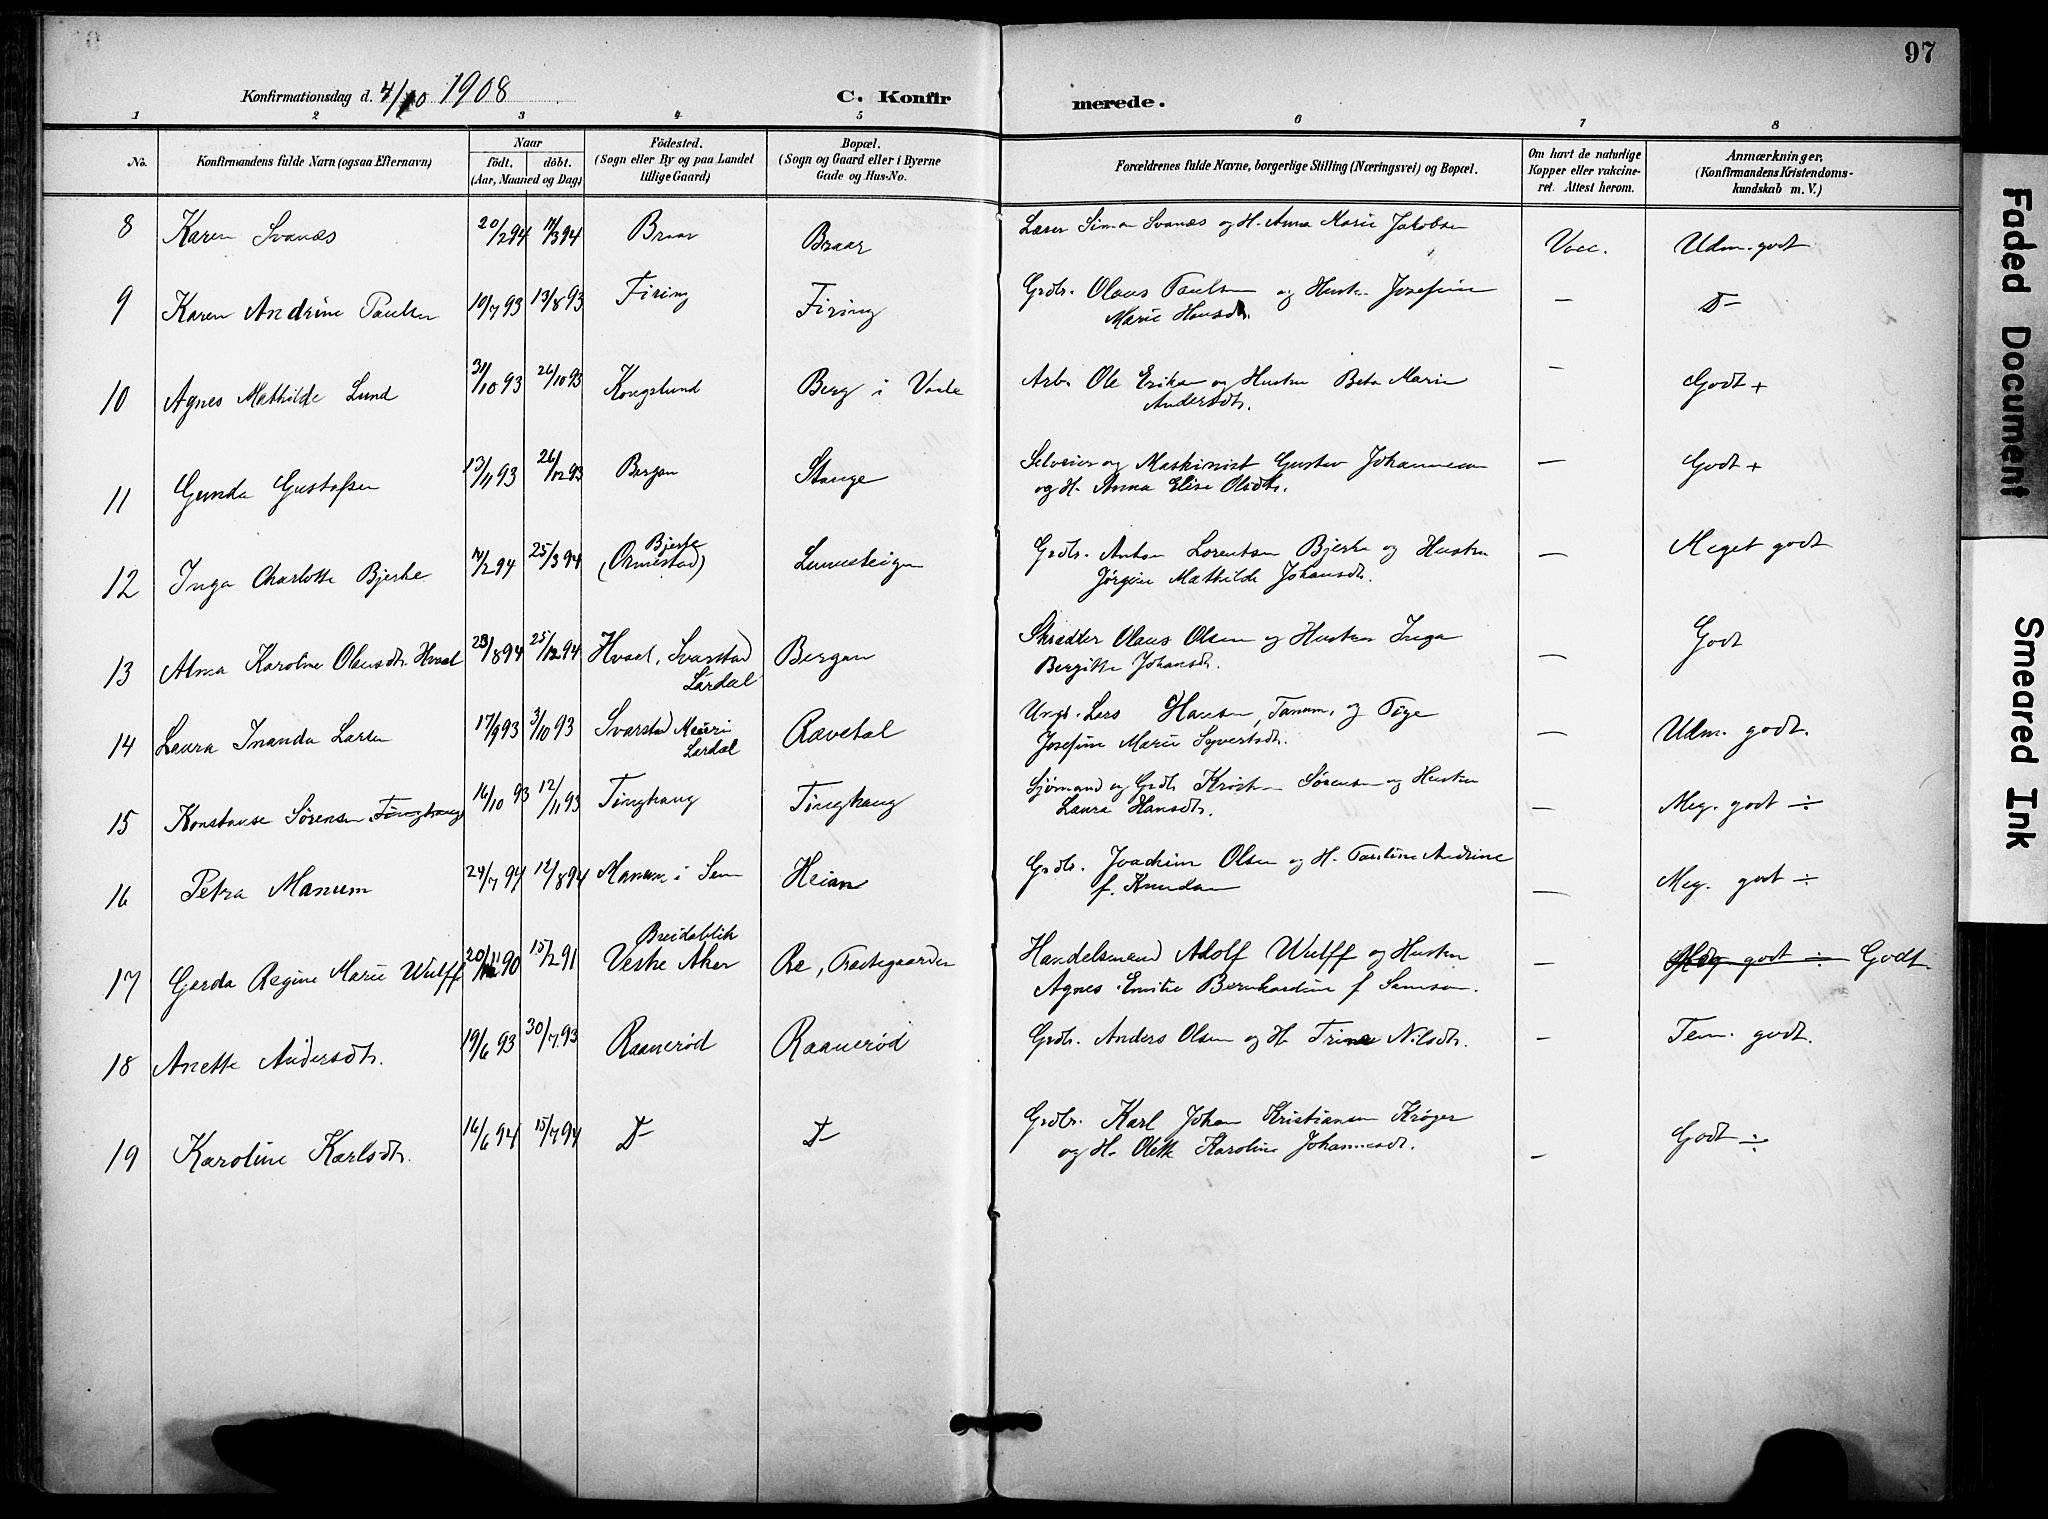 97
Konfirmationsdag d. 4/10 1908
C. Konfirmerede.
1 2 3 4 5 6 7 8
No.
Konfirmandens fulde Navn (ogsaa Efternavn)
Naar
födt. döbt.
(Aar, Maaned og Dag)
Födested.
(Sogn eller By og paa Landet
tillige Gaard)
Bopæl.
(Sogn og Gaard eller i Byerne
Gade og Hus-No.
Forældrenes fulde Navne, borgerlige Stilling (Næringsvei) og Bopæl.
Om havt de naturlige
Kopper eller vakcine-
ret. Attest herom.
Anmærkninger.
(Konfirmandens Kristendoms-
kundskab m. V.)
8 Karen Svanæs 20/2 94 /3 94 Braar Braar Lærer Simon Svanæs og H. Anna Marie Jakobsen Vacc. Udm. godt
9 Karen Andrine Paulsen 19/7 93 13/8 93 Firing Firing Grdbr. Olaus Paulsen og Hustru Josefine
Marie Hansdtr. — D-
10 Agnes Mathilde Lund /10 93 26/10 93 Kongslund Berg i Vaale Arb. Ole Eriksen og Hustru Beta Marie
Andersdtr. — Godt +
11 Gunda Gustafsen 13/11 93 26/12 93 Bergan Stange Selveier og Maskinist Gustav Johannesen
og H. Anna Elise Olsdtr. — Godt +
12 Inga Charlotte Bjerke /2 94 25/3 94 Bjerke
(Ormestad) Lunnesteigen Grdbr. Anton Lorentsen Bjerke og Hustru
Jørgine Mathilde Johansdtr. — Meget godt
13 Alma Karoline Olausdtr. Hvaal 23/8 94 25/12 94 Hvaal, Svarstad
Lardal Bergan Skrædder Olaus Olsen og Hustru Inga
Bergitte Johansdtr. — Godt
14 Laura Inanda Larsen 17/9 93 3/10 93 Svarstad
Lardal Ravetal Ungk. Lars Hansen, Tanum, og Pige
Josefine Marie Syvertsdtr. — Udm. godt.
15 Konstanse Sørensen Tinghaug 16/10 93 12/11 93 Tinghaug Tinghaug Sjømand og Grdbr. Kristen Sørensen og Hustru
Laura Hansdtr. — Meg. godt ÷
16 Petra Manum 24/7 94 12/8 94 Manum i Sem Heian Grdbr. Joachim Olsen og H. Pauline Andrine
f. Knudsen — Meg. godt ÷
17 Gerda Regine Marie Wulff 20/11 90 15/2 91 Breidablik
Vestre Aker Re, Præstegaarden Handelsmand Adolf Wulff og Hustru
Agnes Emilie Bernhardine f. Samson. — Meg godt ÷ Godt.
18 Anette Andersdtr. 19/6 93 30/7 93 Raanerød Raanerød Grdbr. Anders Olsen og H. Trine Nilsdtr. — Tem. godt.
19 Karoline Karlsdtr. 16/6 94 15/7 94 D- D- Grdbr. Karl Johan Kristiansen Krøger
og H. Olette Karoline Johannesdtr. — Godt ÷
Faded Document
Smeared Ink